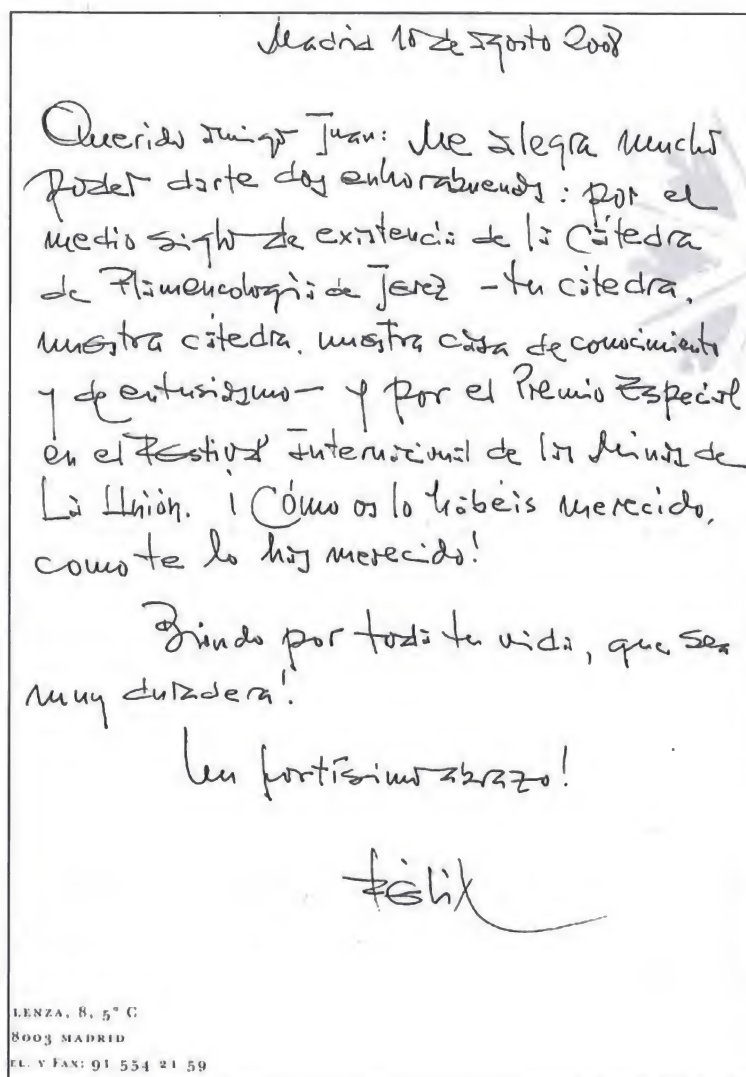 Madrid 10 de agosto 2008
Querido amigo Juan: Me alegra mucho
poder darte dos enhorabuenas: por el
medio siglo de existencia de la Cátedra
de Flamencología de Jerez - tu cátedra,
nuestra cátedra, nuestra casa de conocimiento
y de entusiasmo - y por el Premio Especial
en el Festival Internacional de las Minas de
La Unión. ¡Cómo os lo habéis merecido,
como te lo has merecido!
Brindo por toda tu vida, que sea
muy duradera!
Un fortísimo abrazo!
Félix
LENZA, 8, 5º C
8003 MADRID
EL. Y FAX: 91 554 21 59